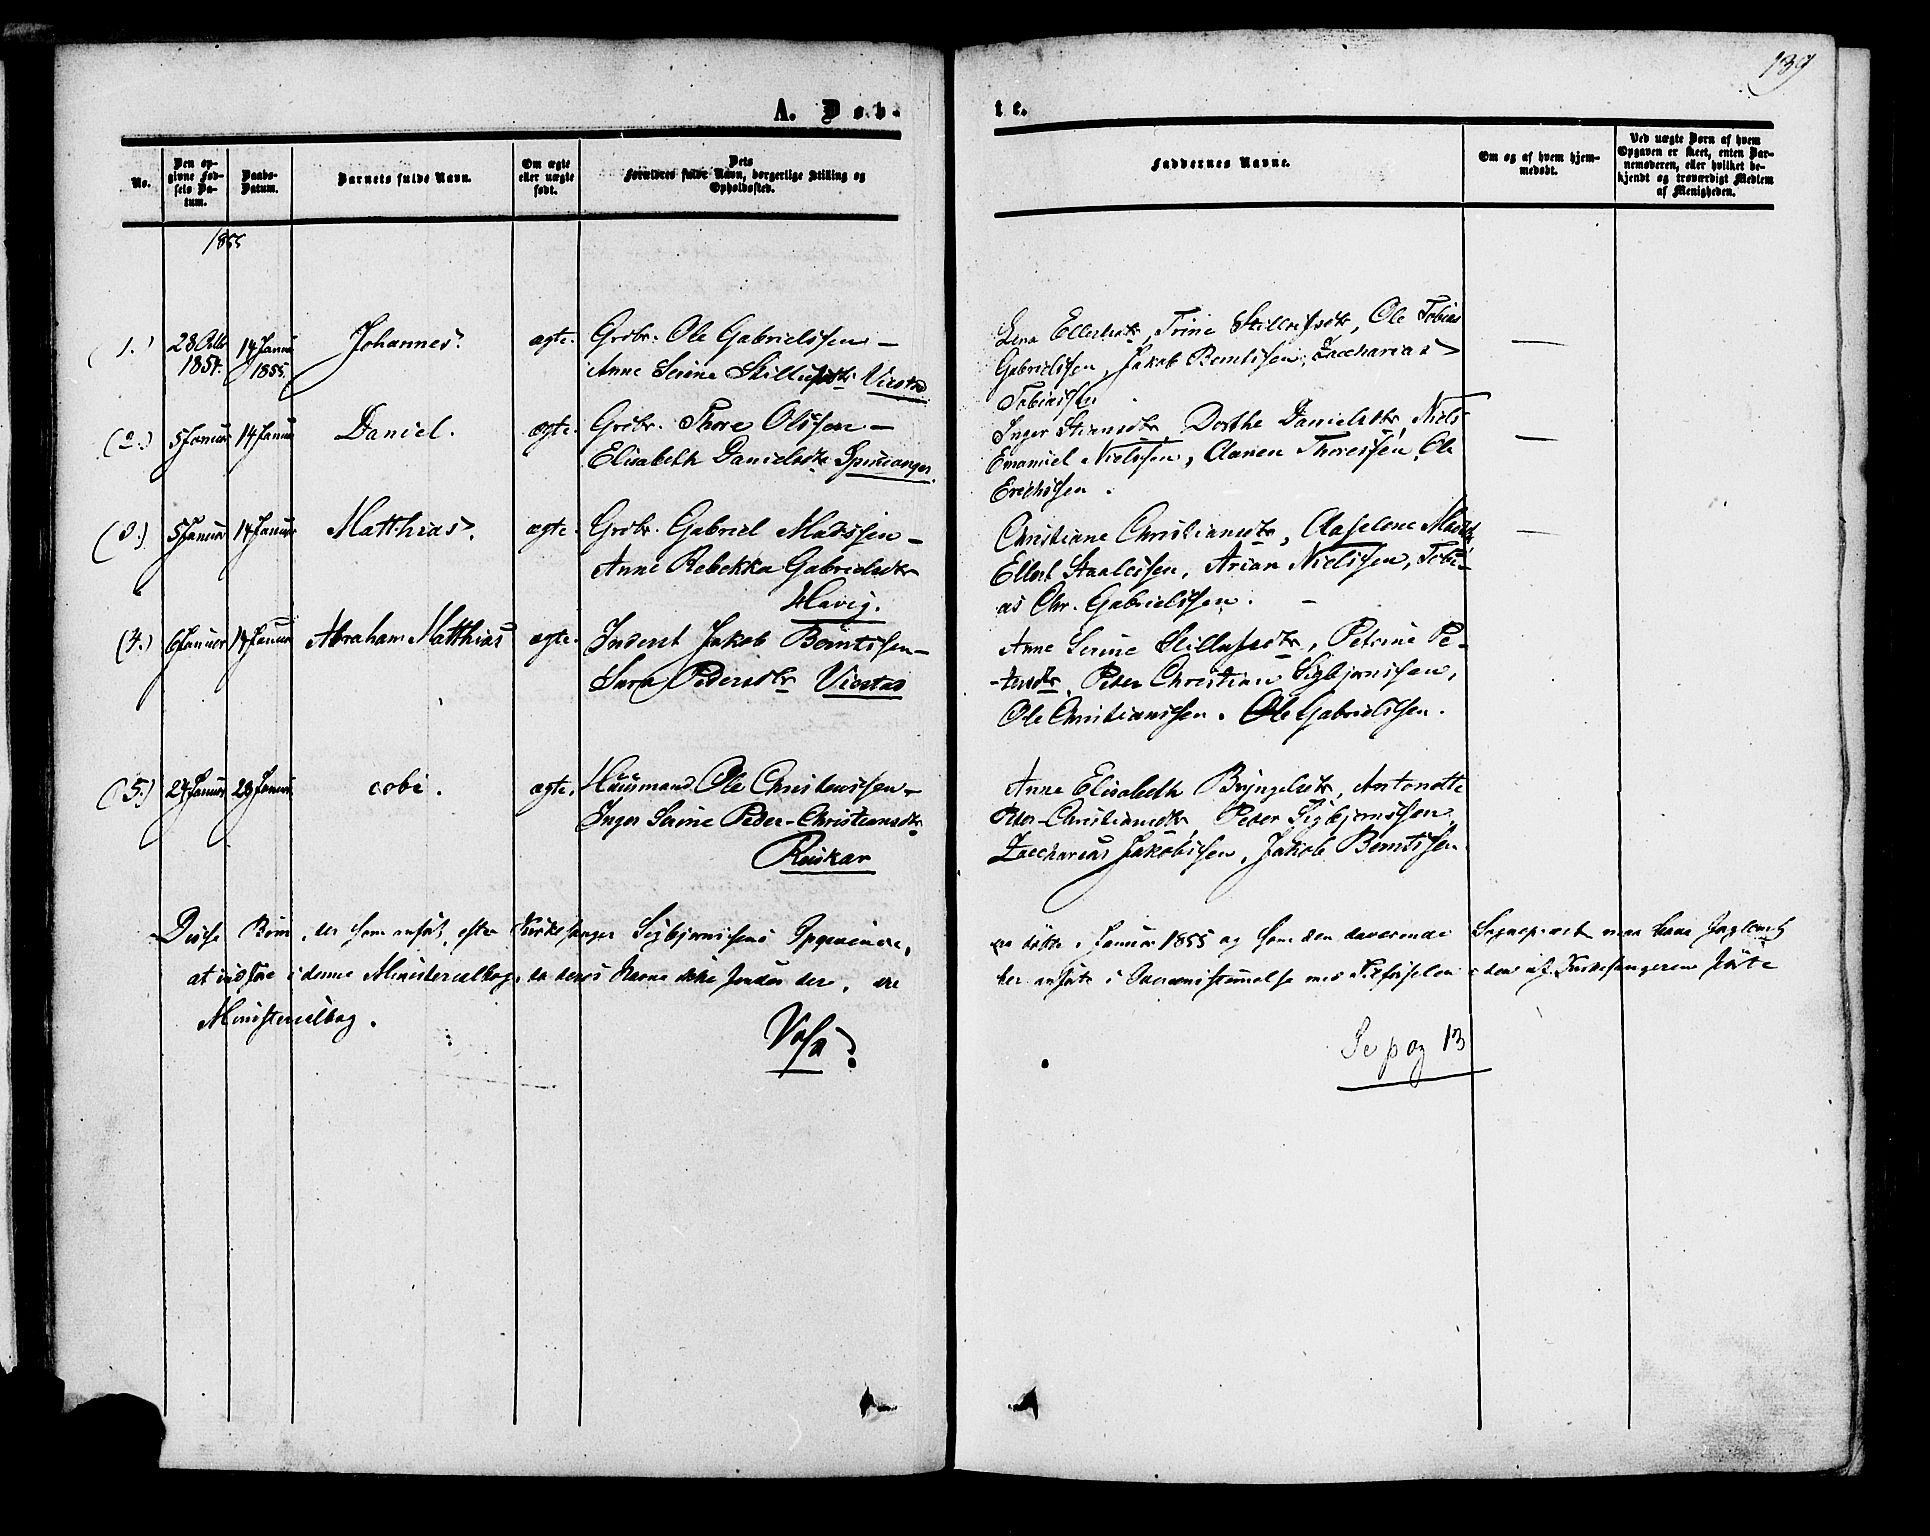 139
A. Døb-
te.
No.
Den op-
givne Fød-
sels Da-
tum.
Daabs-
Datum.
Barnets fulde Navn.
Om ægte
eller uægte
født.
Dets
Forældres fulde Navn, borgerlige Stilling og
Opholdssted.
Faddernes Navne.
Om og af hvem hjem-
medøbt.
Ved uægte Børn af hvem
Opgaven er skeet, enten Bar-
nemoderen, eller hvilket be-
kjendt og troværdigt Medlem
af Menigheden.
1855
(1.)
28 Octb
1854.
14 Januar
1855.
Johannes.
ægte.
Grdbr. Ole Gabrielssen –
Anne Serine Stillufsdtr Viestad
Ellertsdtr, Trine Stillufsdtr, Ole Tobias
Gabrielssen, Jakob Berntssen, Zaccharias
Tobiassen
—
(2.)
5 Januar
14 Januar
Daniel.
ægte.
Grdbr. Thore Olssen –
Elisabeth Danielsdtr
Inger Dorthe Danielsdtr, Niels
Emanuel Nielssen, Thoressen, Ole
Erichssen.
—
(3.)
5 Januar
14 Januar
Matthias.
ægte.
Grdbr. Gabriel Madssen –
Anne Rebekka Gabrielsdtr
Havig.
Christiane Christiansdtr,
Ellert Staalessen, Arian Nielssen, Tobi-
as Chr. Gabrielssen. –
—
(4.)
6 Januar
14 Januar
Abraham Matthias
ægte.
Inderst Jakob Berntssen –
Sara Pedersdtr Viestad
Anne Serine Stillufsdtr, Petrine Pe-
-tersdtr, Peder Christian Sigbjørnssen,
Ole Christianssen. Ole Gabrielssen.
(5.)
24 Januar
28 Januar
ægte.
Huusmand Ole
Inger Serine Peder-Christiansdtr
Ruskar
Anne Elisabeth Bryngelsdtr, Antonette
Peder-Christiansdtr Peder Sigbjørnssen,
Zaccharias Jakobssen, Jakob Berntssen
Disse Børn, der som anført, efter Kirkesanger Sigbjørnssens Opgivende, ere døbte i Januar 1855 og som den daværende Sognepræst maa have
at indføre i denne Ministerialbog, da deres Navne ikke findes der, ere her anførte i Overensstemmelse med Tilførselen i den af Kirkesangeren førte
Ministerialbog.
Se pag 13